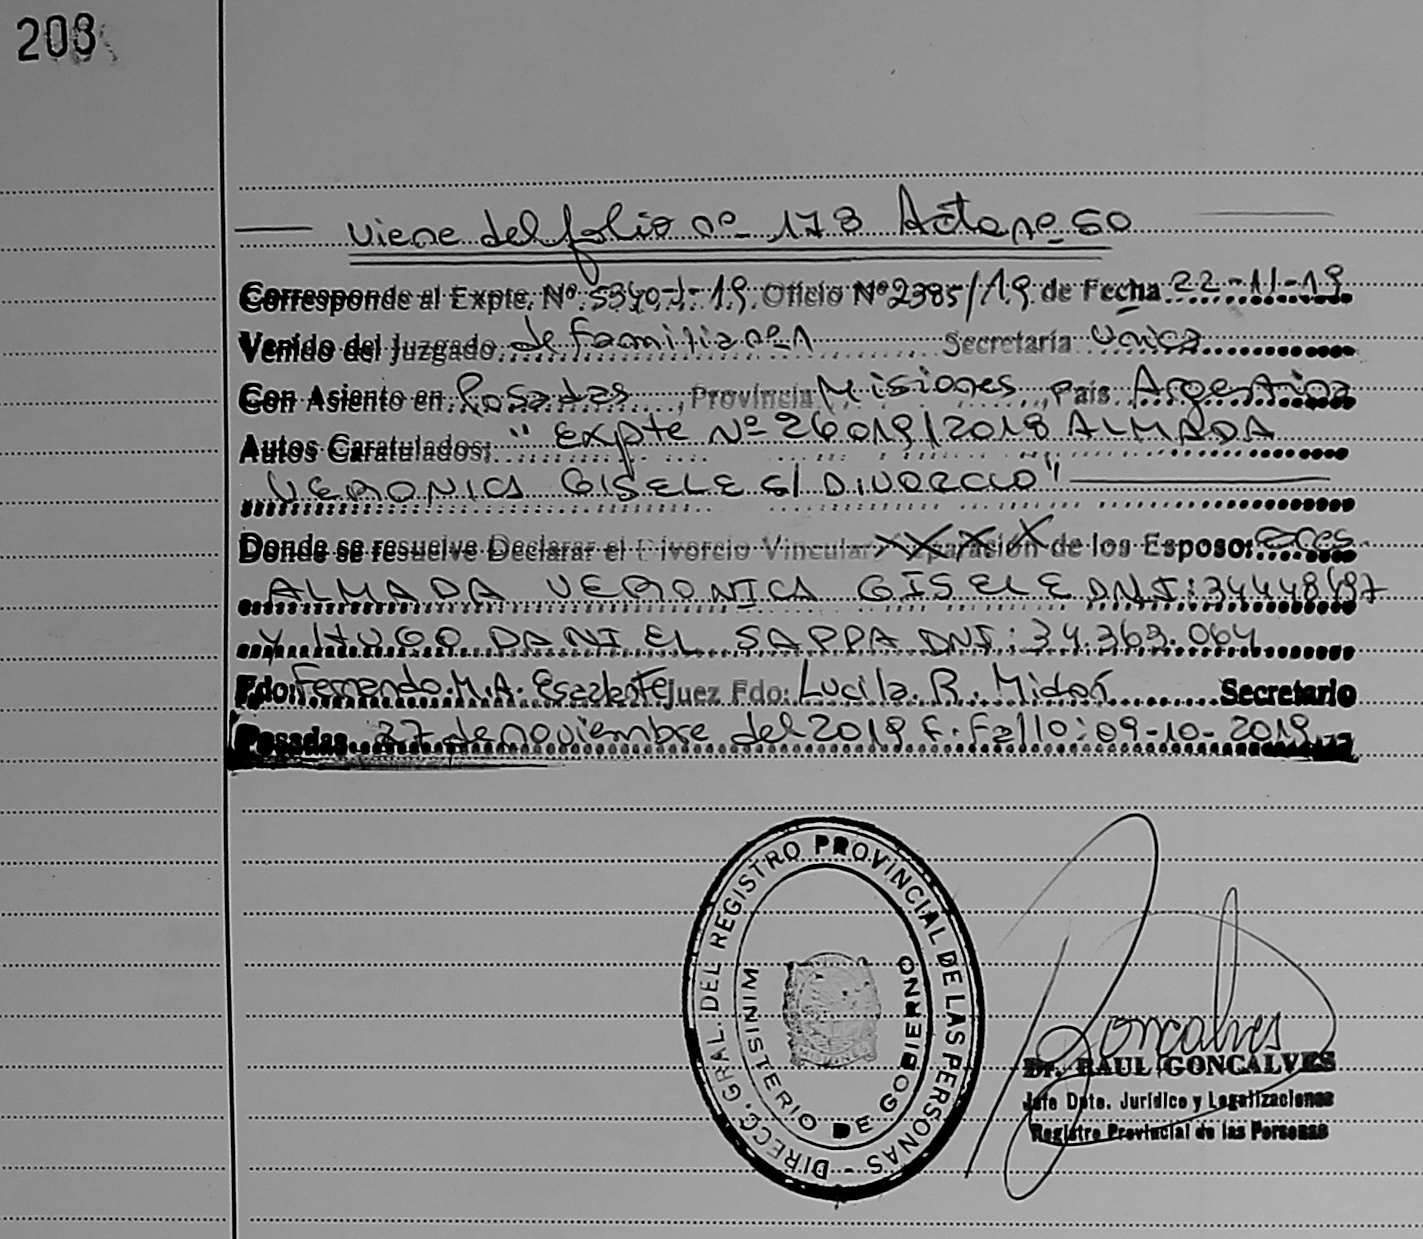 203
Viene del folio nº 178 Acta nº 60
Corresponde al Expte. Nº 5340-J-19, Oficio Nº 2385/19 de Fecha 22-11-19
Venido del Juzgado de Familia nº 1 Secretaría Unica
Con Asiento en Posadas, Provincia Misiones, país Argentina
Autos Caratulados: "Expte Nº 26019/2018 ALMADA
VERONICA GISELE S/ DIVORCIO"
Donde se resuelve Declarar el Divorcio Vincular de los Esposo:
ALMADA VERONICA GISELE DNI: 34448497
Y HUGO DANIEL SAPPA DNI: 34.363.064
Fdo: Fernando M.A. Escalante Juez Fdo: Lucila R. Secretario
Posadas 27 de noviembre del 2019 F. Fallo: 09-10-2019
DIRECC. GRAL. DEL REGISTRO PROVINCIAL DE LAS PERSONAS -
MINISTERIO DE GOBIERNO
Goncalves
Dr. RAUL GONCALVES
Jefe Dpto. Jurídico y Legalizaciones
Registro Provincial de las Personas